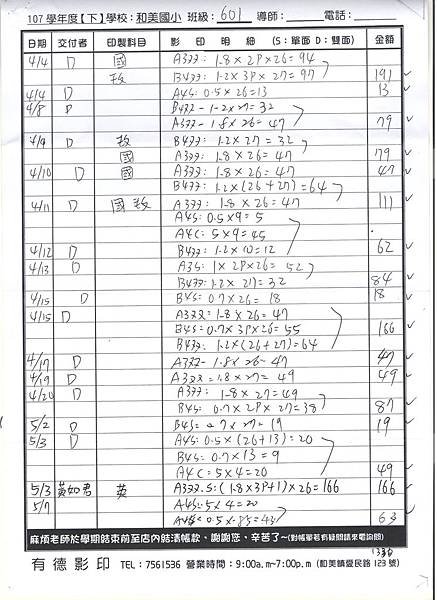 107 學年度【下】學校：和美國小 班級：601 導師：______ 電話：______
日期 交付者 印製科目 影 印 明 細 (S：單面 D：雙面) 金額
4/4 D 國 A3双: 1.8×2P×26=94
教 B4双: 1.2×3P×27=97 191
4/4 D A4S: 0.5×26=13 13
4/8 D B4双 - 1.2×27=32
A3双 - 1.8×26=47 79
4/9 D 教 B4双: 1.2×27=32
國 A3双: 1.8×26=47 79
4/10 D 國 A3双: 1.8×26=47 47
B4双: 1.2×(26+27)=64
4/11 D 國 教 A3双: 1.8×26=47 111
A4S: 0.5×9=5
A4C: 5×9=45
4/12 D B4双: 1.2×10=12 62
4/13 D A3S: 1×2P×26=52
B4双: 1.2×27=32 84
4/15 D B4S: 0.7×26=18 18
4/15 D A3双: 1.8×26=47
B4S: 0.7×3P×26=55
B4双: 1.2×(26+27)=64 166
4/17 D A3双 - 1.8×26=47 47
4/19 D A3双: 1.8×27=49 49
4/20 D A3双: 1.8×27=49
B4S: 0.7×2P×27=38 87
5/2 D B4S: 0.7×27=19 19
5/3 D A4S: 0.5×(26+13)=20
B4S: 0.7×13=9
A4C: 5×4=20 49
5/3 英 A3双.S: (1.8×3P+1)×26=166 166
5/7 A4S: 5×4=20
A4S: 0.5×85=43 63
麻煩老師於學期結束前至店內結清帳款，謝謝您，辛苦了~(對帳單若有疑問請來電詢問)
有德影印 TEL：7561536 營業時間：9:00a.m~7:00p.m (和美鎮愛民路 123 號)